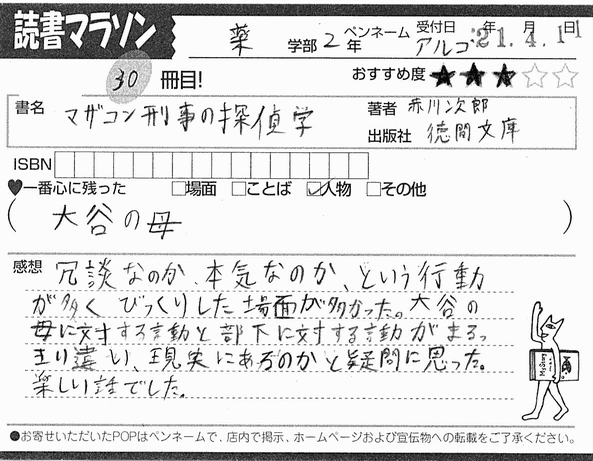 読書マラソン
薬 学部 2 年 ペンネーム アルコ 受付日 '21.4.11 年 月 日
30 冊目! おすすめ度 ★★★☆☆
書名 マザコン刑事の探偵学 著者 赤川次郎
出版社 徳間文庫
ISBN
♥一番心に残った □場面 □ことば ☑人物 □その他
( 大谷の母 )
感想 冗談なのか、本気なのか、という行動
が多く びっくりした場面が多かった。大谷の
母に対する言動と部下に対する言動がまるっ
きり違い、現実にあるのかと疑問に思った。
楽しい話でした。
Mystery
●お寄せいただいたPOPはペンネームで、店内で掲示、ホームページおよび宣伝物への転載をご了承ください。